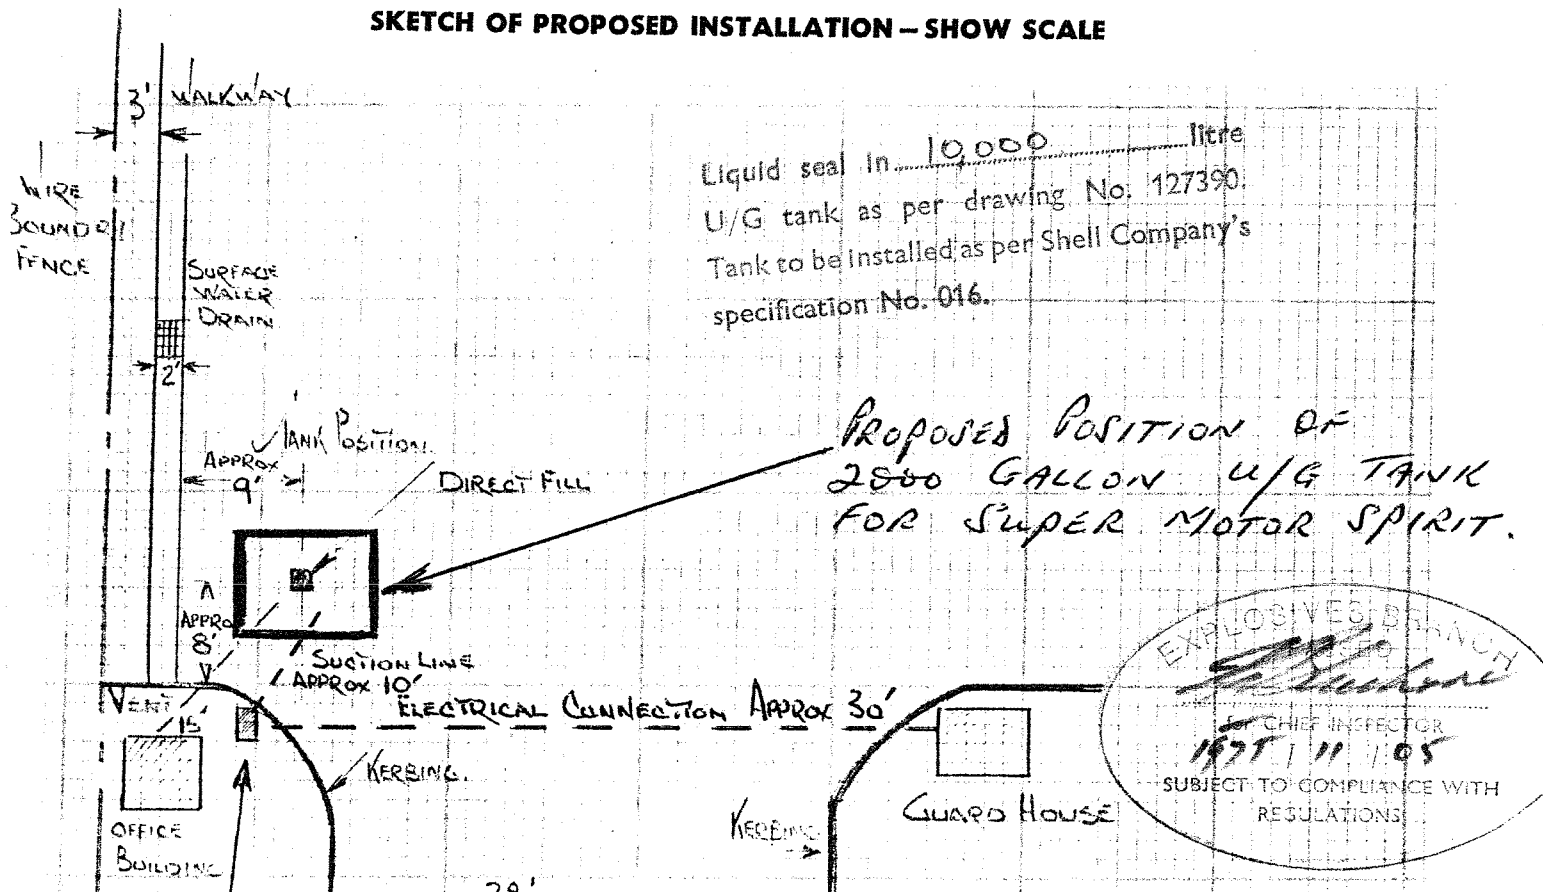 SKETCH OF PROPOSED INSTALLATION – SHOW SCALE
3' WALKWAY
WIRE
BOUND
FENCE
SURFACE
WATER
DRAIN
2'
Liquid seal in 10,000 litre
U/G tank as per drawing No. 127390.
Tank to be installed as per Shell Company's
specification No. 016.
TANK POSITION
APPROX
9'
DIRECT FILL
PROPOSED POSITION OF
2000 GALLON U/G TANK
FOR SUPER MOTOR SPIRIT.
APPROX
8'
SUCTION LINE
APPROX 10'
VENT
15'
ELECTRICAL CONNECTION APPROX 30'
KERBING.
OFFICE
BUILDING
KERBING
GUARD HOUSE
EXPLOSIVES BRANCH
CHIEF INSPECTOR
1975 / 11 / 05
SUBJECT TO COMPLIANCE WITH
REGULATIONS